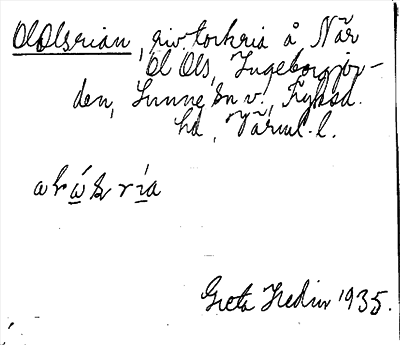 OlOlsrian, rivtorkria å När
Ol Ols, Ingeborgjor-
den, Sunne sn v., Fryksd.
hd, Värml. l.
Greta Hedin 1935.